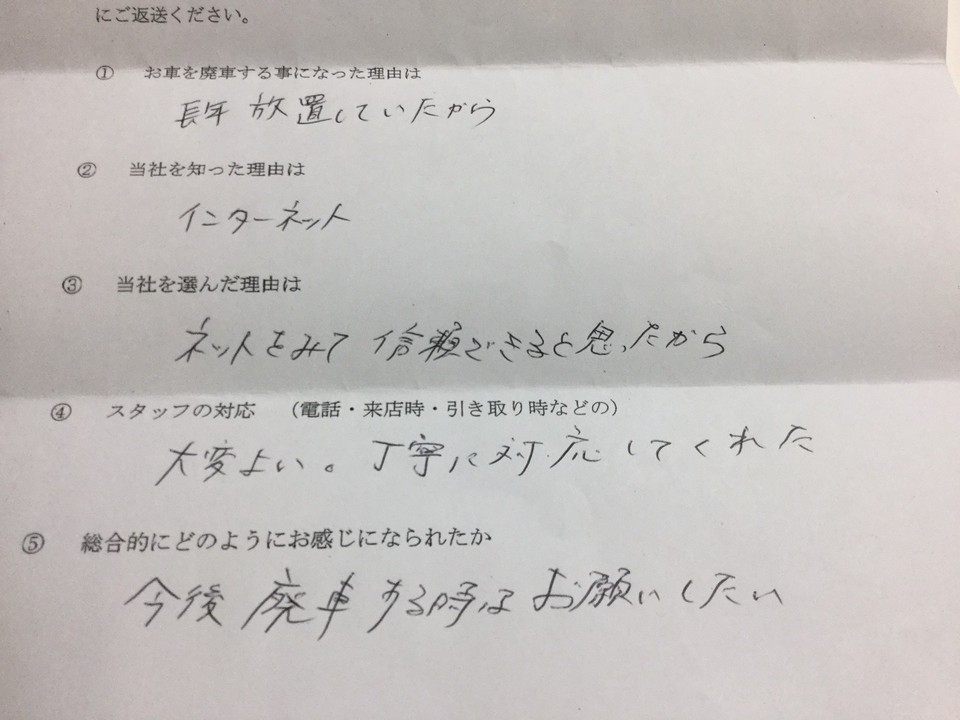 にご返送ください。
① お車を廃車する事になった理由は
長年放置していたから
② 当社を知った理由は
インターネット
③ 当社を選んだ理由は
ネットをみて信頼できると思ったから
④ スタッフの対応 （電話・来店時・引き取り時などの）
大変よい。丁寧に対応してくれた
⑤ 総合的にどのようにお感じになられたか
今後廃車する時はお願いしたい